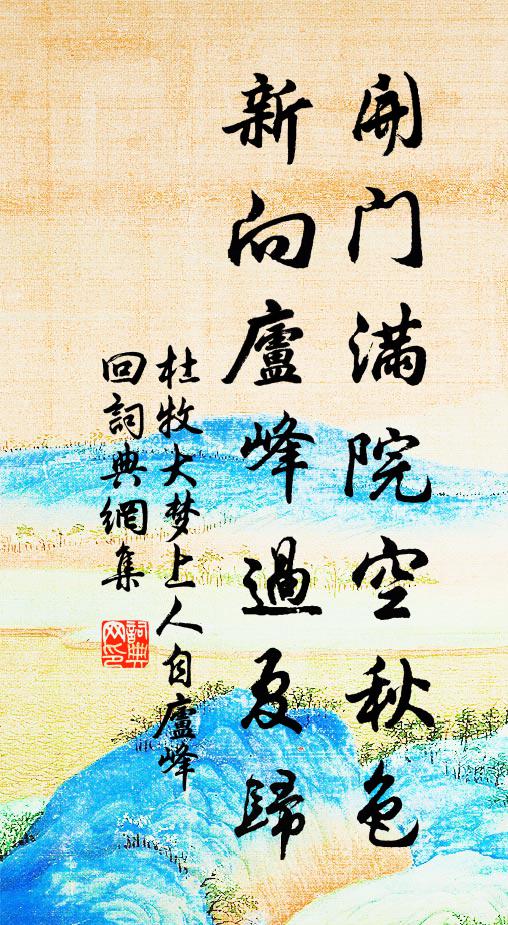 開門滿院空秋色
新向廬峰過夏歸
杜牧大梦上人自廬峰
回詞典網集
詞典
网印